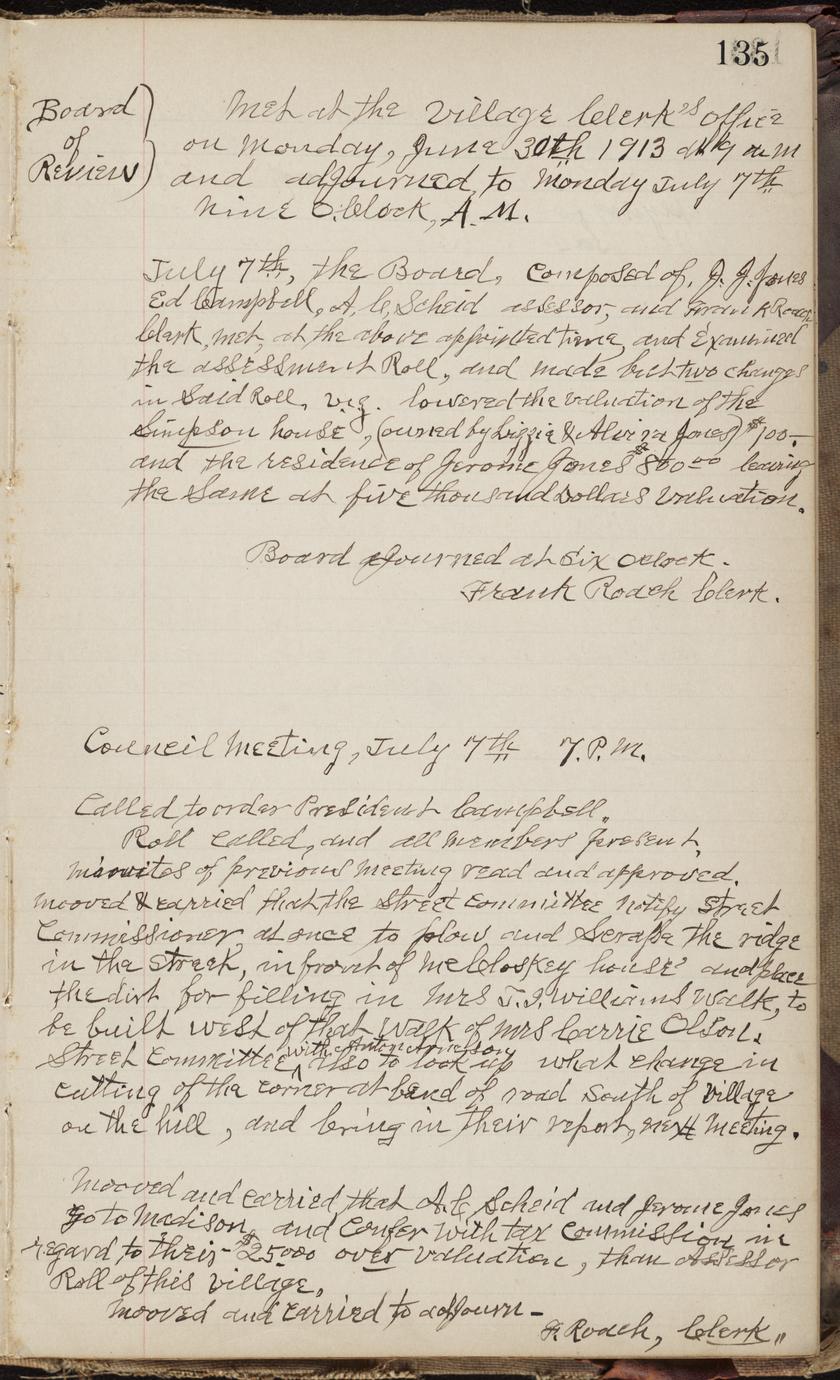 135
Board
of
Review
Met at the Village Clerk's office
on Monday, June 30th 1913 at 9 a m
and adjourned to Monday July 7th
Nine O.Clock, A.M.
July 7th, the Board, Composed of, J. J. Jones
Ed Campbell, A. C, Scheid assessor, and Frank Roach
Clerk, met, at the above appointed time, and Examined
the assessment Roll, and made but two changes
in Said Roll, viz. lowered the valuation of the
Simpson house, (owned by Lizzie & Alvira Jones) $100-
and the residence of Jerome Jones $800 00 leaving
the Same at five thousand Dollars Valuation.
Board ajourned at Six Oclock.
Frank Roach Clerk.
Council Meeting, July 7th 7. P. M.
Called to order President Campbell.
Roll Called, and all Members present.
of previous Meeting read and approved.
Mooved & carried that the Street committee notify Street
Commissioner, at once to plow and Scrape the ridge
in the Street, in front of McCloskey house and place
the dirt for filling in Mrs T. J. Williams Walk, to
be built west of that Walk of Mrs Carrie Olson.
with Anton Arneson
Street Committee Also to look up what change in
cutting of the corner at bend of road South of village
on the hill, and bring in their report, next Meeting.
Mooved and Carried, that A. C Scheid and Jerome Jones
go to Madison, and Confer with tax Commission, in
regard to their $25000 over valuation, than Assessor
Roll of this village.
Mooved and Carried to adjourn -
F. Roach, Clerk.